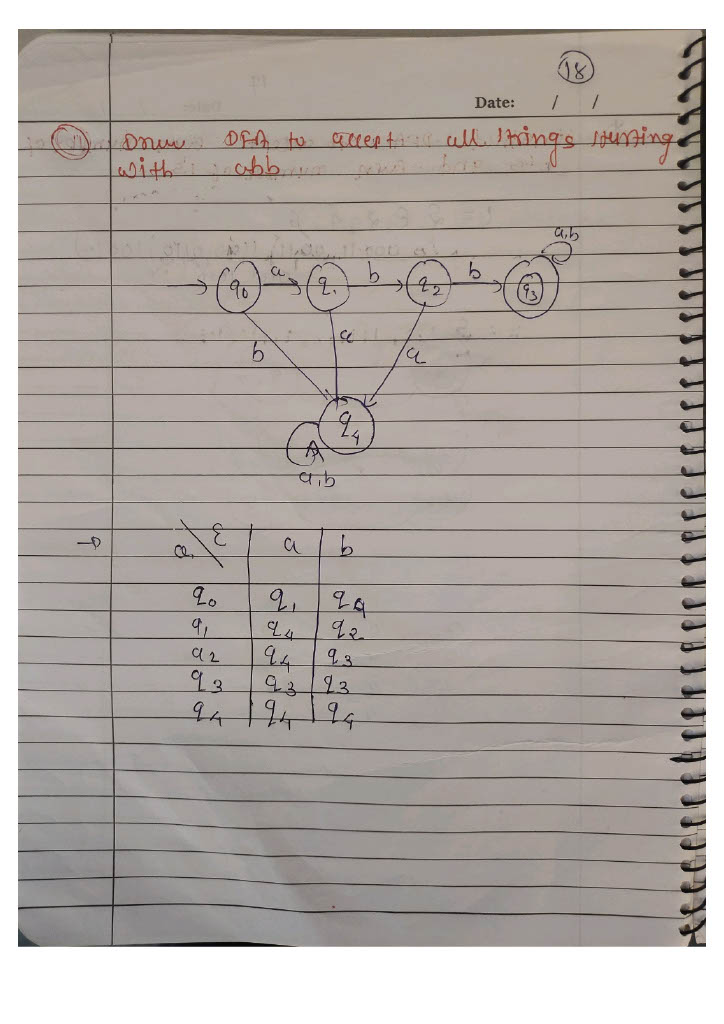 18
Date: / /
Draw DFA to accept all strings starting
with abb
a,b
q0 a q1 b q2 b q3
b a a
q4
a,b
Q Σ a b
q0 q1 q4
q1 q4 q2
q2 q4 q3
q3 q3 q3
q4 q4 q4